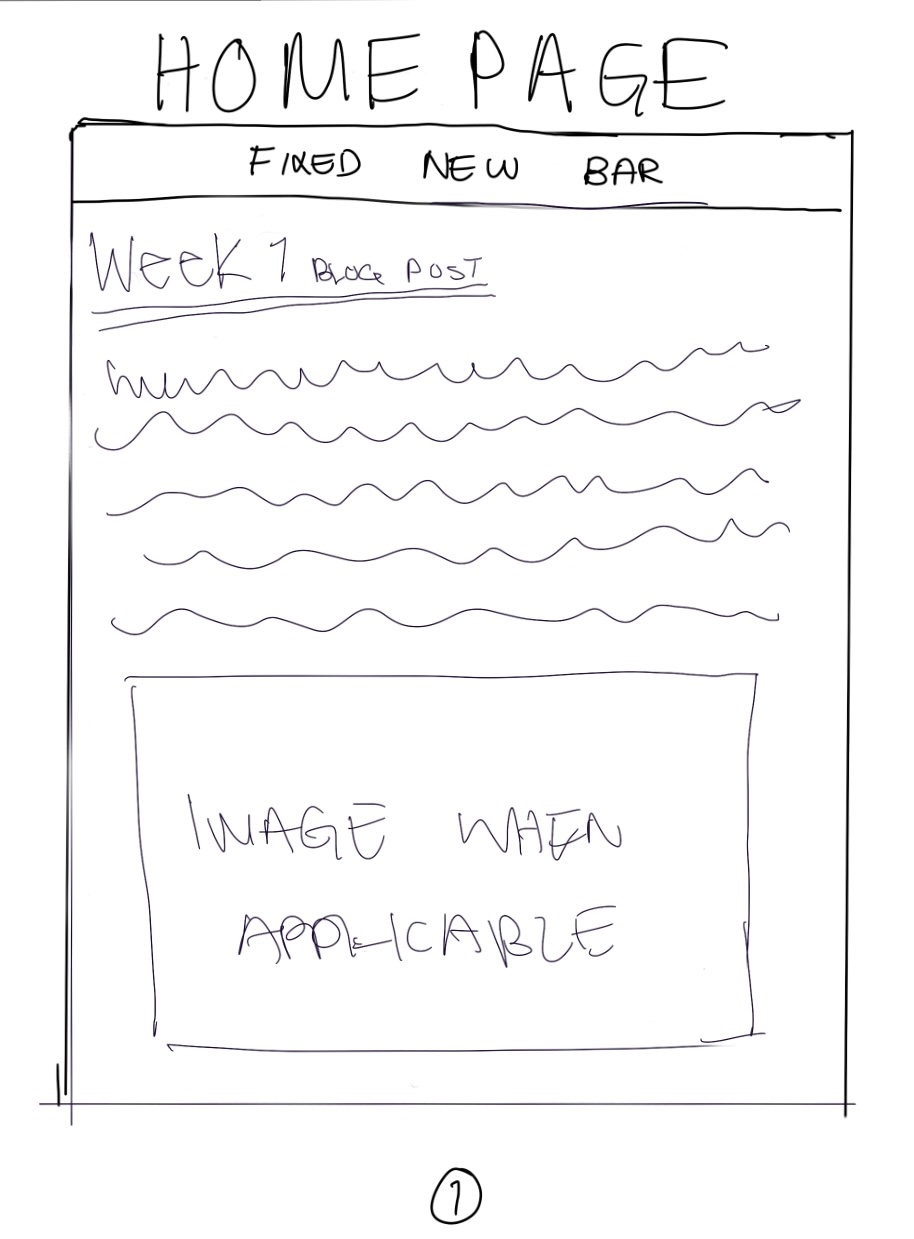 HOME PAGE
FIXED NEW BAR
Week 1 BLOG POST
IMAGE WHEN
APPLICABLE
1